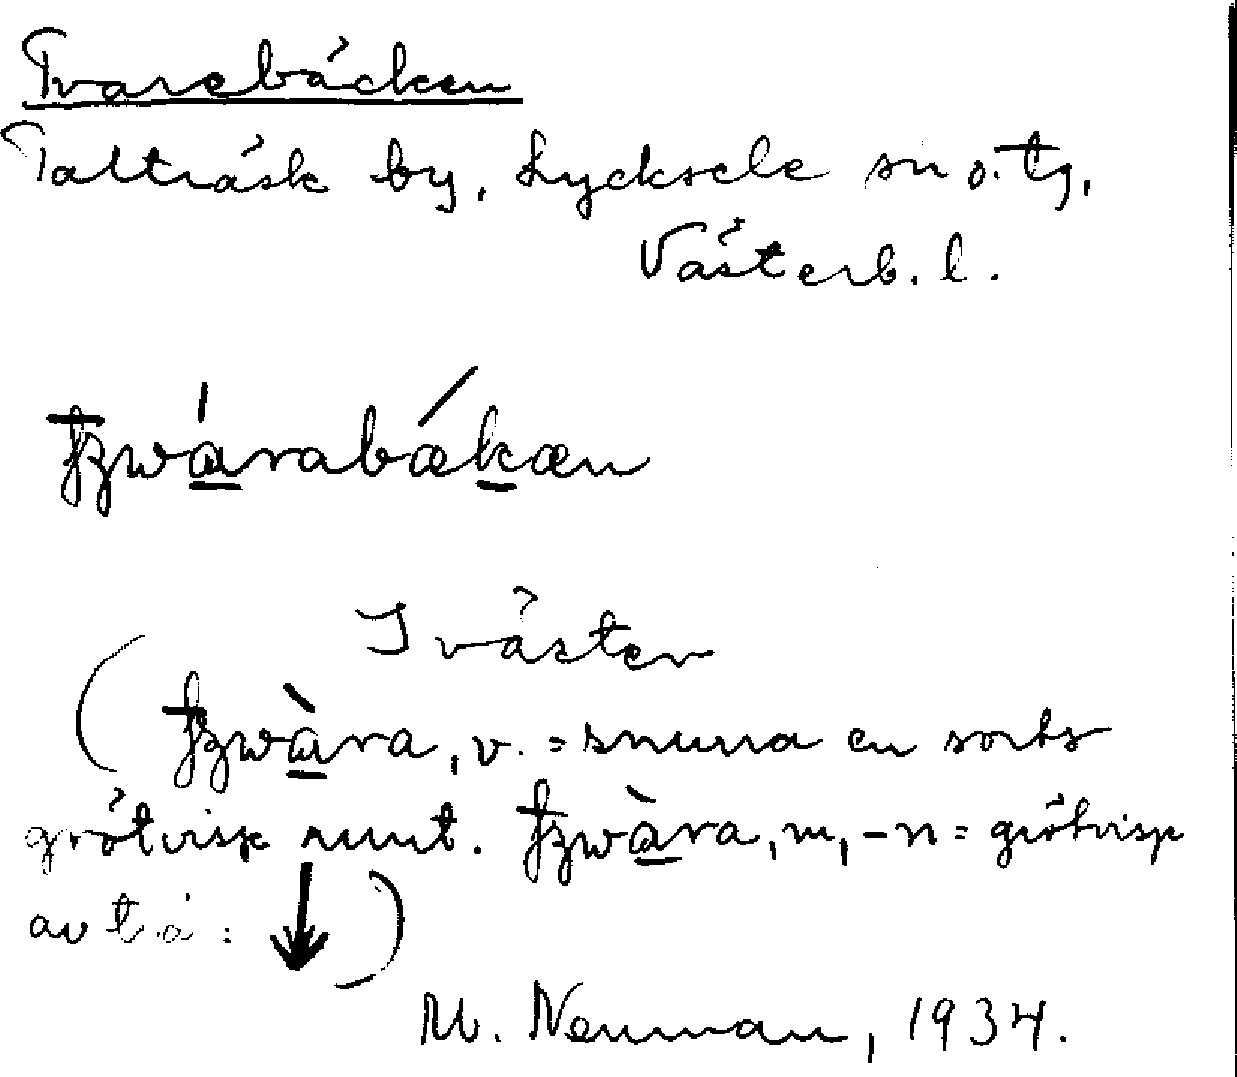 Tvarebäcken
Talträsk by, Lycksele sn o. tg,
Västerb. l.
I väster
, v. = snurra en sorts
grötvisp runt. , m, -n = grötvisp
av trä:
M. Neuman, 1934.